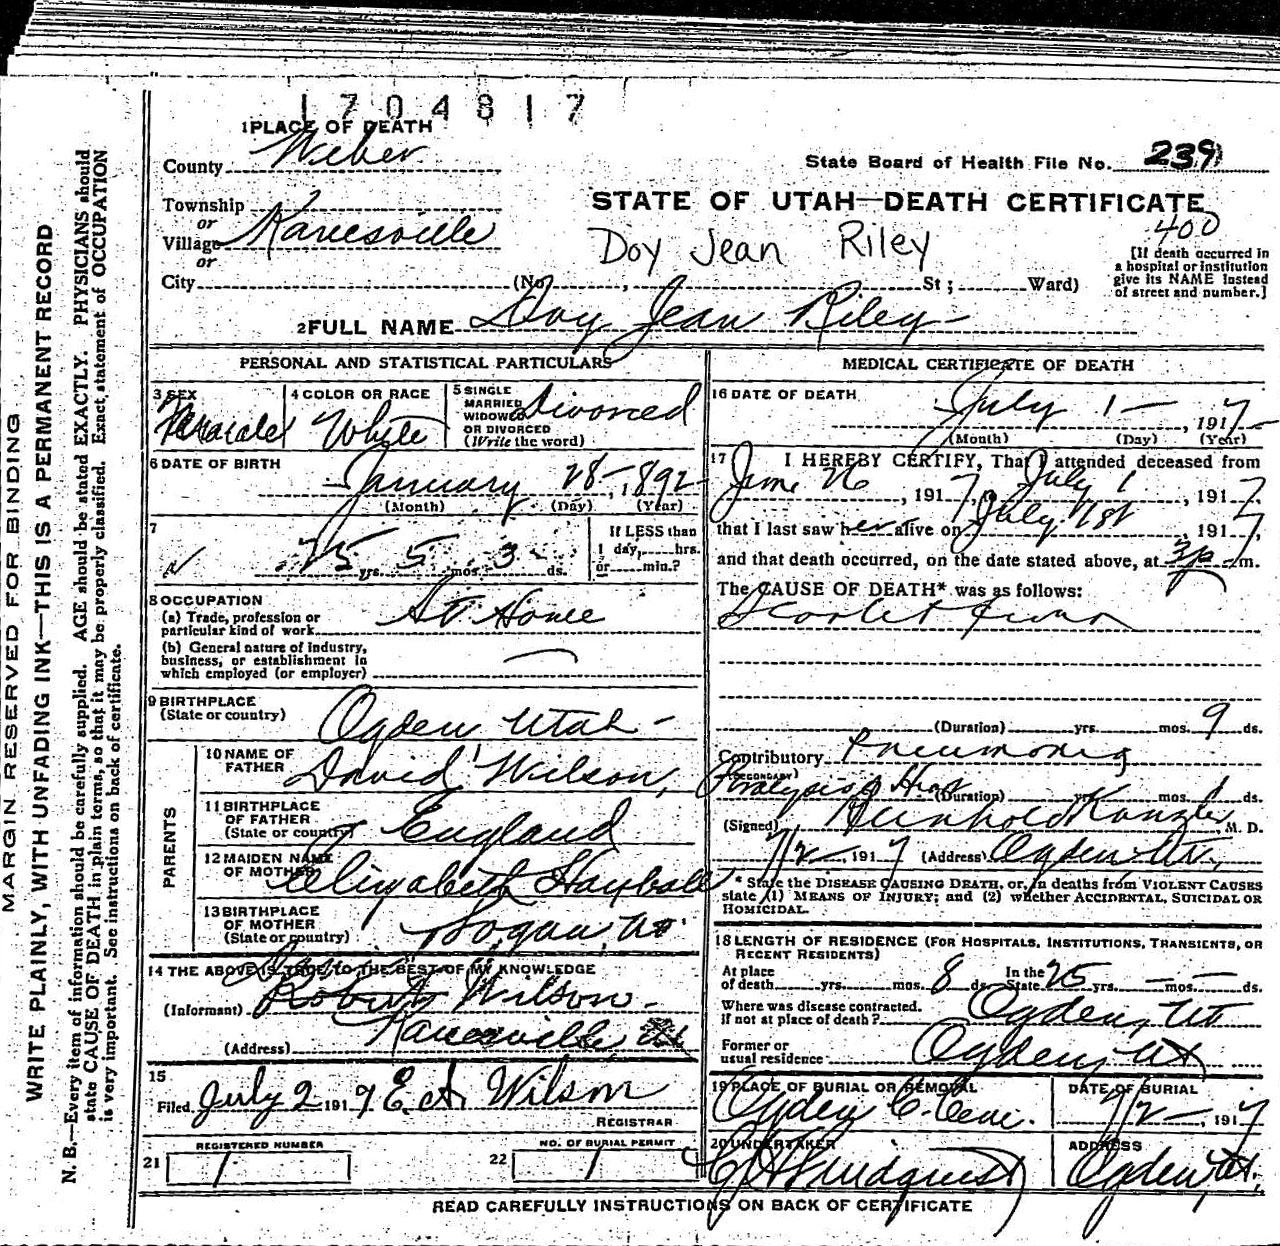 1704817
1 PLACE OF DEATH
County Weber
State Board of Health File No. 239
Township
or
Village Kanesville
or
City (No. , St ; Ward)
STATE OF UTAH—DEATH CERTIFICATE
400
Doy Jean Riley
[If death occurred in
a hospital or institution
give its NAME instead
of street and number.]
2 FULL NAME Doy Jean Riley
PERSONAL AND STATISTICAL PARTICULARS
3 SEX
4 COLOR OR RACE White
5 SINGLE
MARRIED
WIDOWED
OR DIVORCED
(Write the word) Divorced
6 DATE OF BIRTH
January 28, 1892
(Month) (Day) (Year)
7
25 yrs. 5 mos. 3 ds.
If LESS than
1 day, hrs.
or min.?
8 OCCUPATION
(a) Trade, profession or
particular kind of work At Home
(b) General nature of industry,
business, or establishment in
which employed (or employer)
9 BIRTHPLACE
(State or country) Ogden Utah
PARENTS
10 NAME OF
FATHER David Wilson
11 BIRTHPLACE
OF FATHER
(State or country) England
12 MAIDEN NAME
OF MOTHER Elizabeth Hayball
13 BIRTHPLACE
OF MOTHER
(State or country) Logan, Ut.
14 THE ABOVE IS TRUE TO THE BEST OF MY KNOWLEDGE
(Informant) Wilson
(Address) Kanesville Ut
15
Filed July 2 1917 E A Wilson
REGISTRAR
REGISTERED NUMBER
21 1
NO. OF BURIAL PERMIT
22 1
MEDICAL CERTIFICATE OF DEATH
16 DATE OF DEATH
July 1 — , 1917
(Month) (Day) (Year)
17 I HEREBY CERTIFY, That I attended deceased from
June 26, 1917, to July 1, 1917,
that I last saw her alive on July 1st, 1917,
and that death occurred, on the date stated above, at 3 p m.
The CAUSE OF DEATH* was as follows:
Scarlet fever
(Duration) yrs. mos. 9 ds.
Contributory Pneumonia
(SECONDARY)
Paralysis of Heart
(Duration) yrs. mos. 1 ds.
(Signed) Reinhold Kanzler, M. D.
7/2—, 1917 (Address) Ogden, Ut.
* State the DISEASE CAUSING DEATH, or, in deaths from VIOLENT CAUSES
state (1) MEANS OF INJURY; and (2) whether ACCIDENTAL, SUICIDAL OR
HOMICIDAL.
18 LENGTH OF RESIDENCE (FOR HOSPITALS, INSTITUTIONS, TRANSIENTS, OR
RECENT RESIDENTS)
At place
of death yrs. mos. 8 ds. In the
State 25 yrs. — mos. — ds.
Where was disease contracted.
if not at place of death? Ogden, Ut
Former or
usual residence Ogden, Ut
19 PLACE OF BURIAL OR REMOVAL
Ogden C. Cem.
DATE OF BURIAL
7/2—, 1917
20 UNDERTAKER
Lindquist
ADDRESS
Ogden, Ut.
READ CAREFULLY INSTRUCTIONS ON BACK OF CERTIFICATE
MARGIN RESERVED FOR BINDING
WRITE PLAINLY, WITH UNFADING INK—THIS IS A PERMANENT RECORD
N. B.—Every item of information should be carefully supplied. AGE should be stated EXACTLY. PHYSICIANS should
state CAUSE OF DEATH in plain terms, so that it may be properly classified. Exact statement of OCCUPATION
is very important. See instructions on back of certificate.